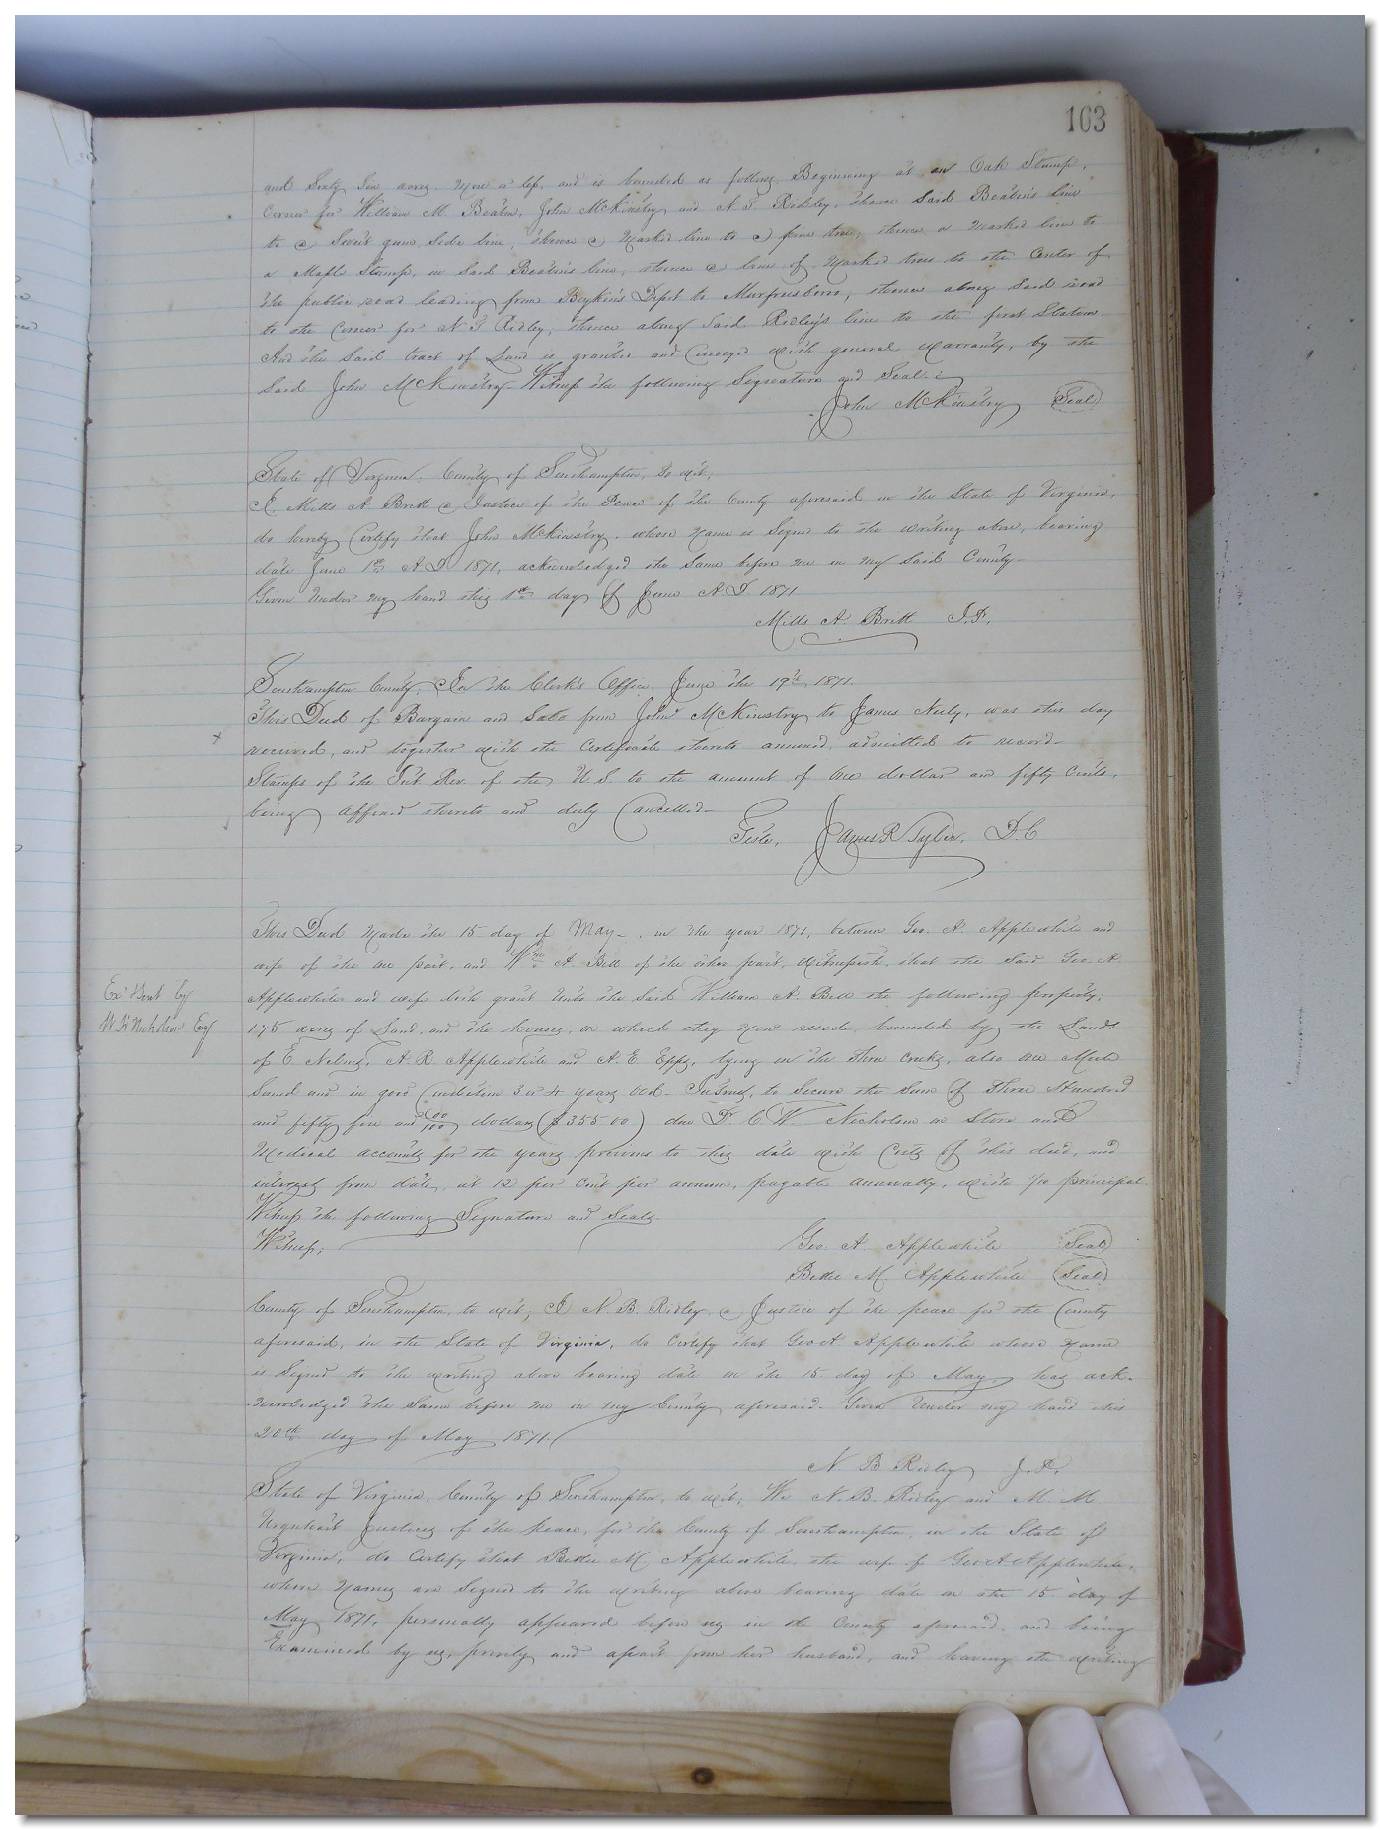 163
and Sixty Six acres more or less, and is bounded as follows. Beginning at an Oak Stump,
Corner for William M. Beaton, John McKinstry and N. T. Ridley, thence Said Beaton's line
to a Sweet gum Side line, thence a Marked line to a pine tree, thence a Marked line to
a Maple Stump, in Said Beaton's line, thence a line of Marked trees to the Center of
the public road leading from Boykin's Depot to Murfreesboro, thence along Said road
to the Corner for N. T. Ridley, thence along Said Ridley's line to the first Station.
And the Said tract of Land is granted and Conveyed with general warranty, by the
Said John McKinstry Witness the following Signature and Seal.
John McKinstry (Seal)
State of Virginia. County of Southampton, to wit,
I, Mills A. Britt a Justice of the Peace of the County aforesaid in the State of Virginia,
do hereby Certify that John McKinstry, whose name is Signed to the writing above, bearing
date June 1st A.D. 1871, acknowledged the Same before me in my Said County.
Given Under my hand this 1st day of June A.D. 1871
Mills A. Britt J.P.
Southampton County, In the Clerk's Office June the 19th, 1871.
This Deed of Bargain and Sale from John McKinstry to James Neely, was this day
received, and together with the Certificate thereto annexed, admitted to record.
Stamps of the Int Rev. of the U.S. to the amount of One dollar and fifty Cents,
being affixed thereto and duly Cancelled.
Teste, James R Tyler, D.C
This Deed Made the 15 day of May, in the year 1871, between Geo. A. Applewhite and
wife of the one part, and Wm A. Bell of the other part, Witnesseth, that the Said Geo. A.
Exd & Sent by
W. H. Nicholson Esq
Applewhite and wife doth grant Unto the Said William A. Bell the following property,
175 acres of Land, and the houses, on which they now reside bounded by the Lands
of E. A. R. Applewhite and A. E. Epps, lying in the Three creeks, also one Mule
Sound and in good Condition 3 or 4 years old. In Trust, to Secure the Sum of Three Hundred
and fifty five and 00/100 dollars ($355.00) due D. C. W. Nicholson on Store and
Medical accounts for the years previous to this date with Costs of this deed, and
interest from date, at 12 per Cent per annum, payable annually, with 1/10 principal.
Witness the following Signature and Seals.
Witness,
Geo. A. Applewhite (Seal)
Bettie M. Applewhite (Seal)
County of Southampton, to wit, I N. B. Ridley, a Justice of the peace for the County
aforesaid, in the State of Virginia, do Certify that Geo A. Applewhite whose name
is Signed to the writing above bearing date on the 15 day of May, has ack-
nowledged the Same before me in my County aforesaid. Given Under my hand this
20th day of May 1871.
N. B Ridley J.P.
State of Virginia, County of Southampton, to wit, We N. B. Ridley and M. M.
Urquhart Justices of the peace, for the County of Southampton, in the State of
Virginia, do Certify that Bettie M. Applewhite, the wife of Geo A Applewhite,
whose names are Signed to the writing above bearing date on the 15 day of
May 1871, personally appeared before us in the County aforesaid, and being
Examined by us, privily and apart from her husband, and having the writing